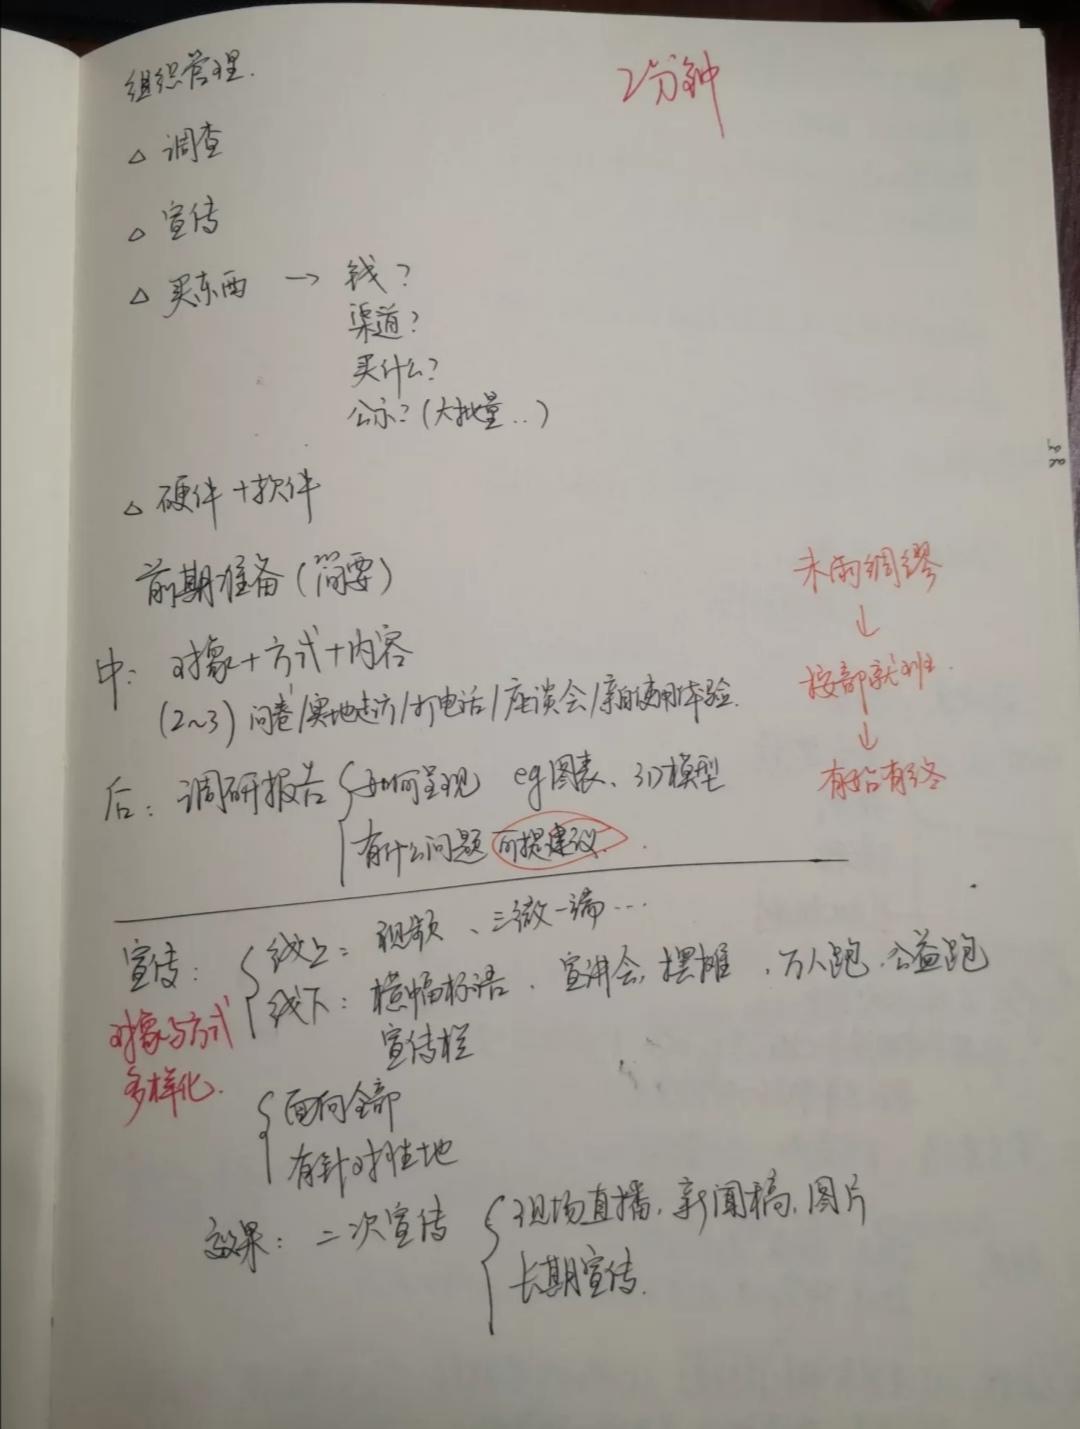 组织管理.
2分钟
△ 调查
△ 宣传
△ 买东西 → 钱?
渠道?
买什么?
公示?(大批量..)
△ 硬件+软件
前期准备(简要)
未雨绸缪
↓
按部就班.
↓
有始有终
中: 对象+方式+内容
(2~3) 问卷/实地走访/打电话/座谈会/亲自使用体验.
后: 调研报告 { 如何呈现 eg图表、3D模型
有什么问题 可提建议.
宣传: { 线上: 视频、三微一端…
线下: 横幅标语、宣讲会, 摆摊、万人跑、公益跑
宣传栏
对象与方式
多样化.
{ 面向全部
有针对性地
效果: 二次宣传 { 现场直播, 新闻稿, 图片
长期宣传.